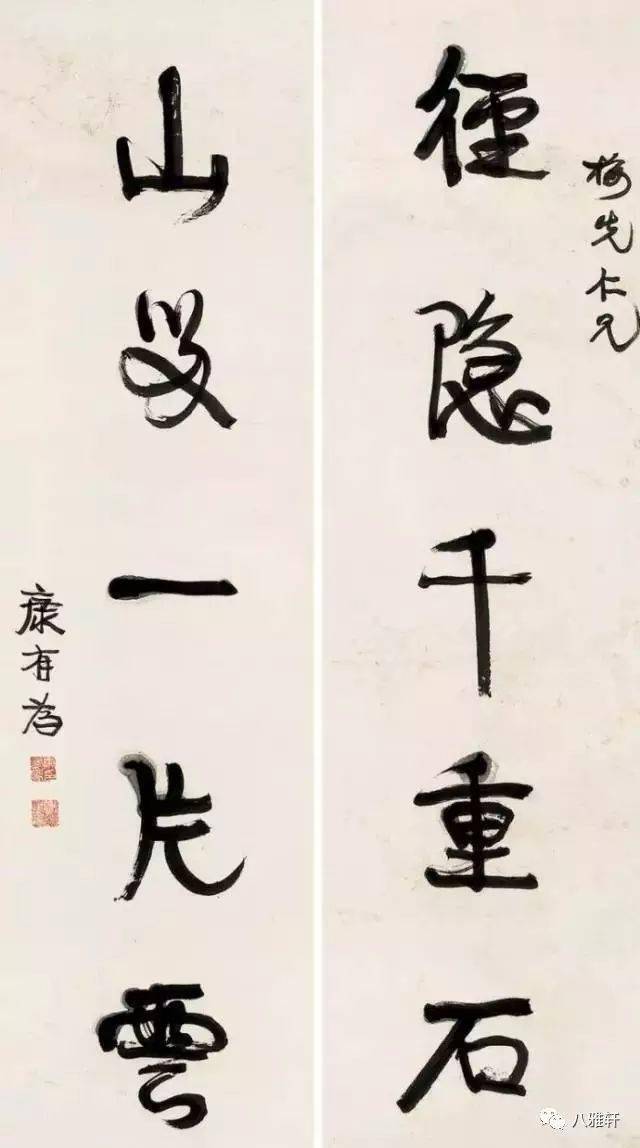 梅先仁兄
徑隐千重石
山一片雲
康有為
八雅轩